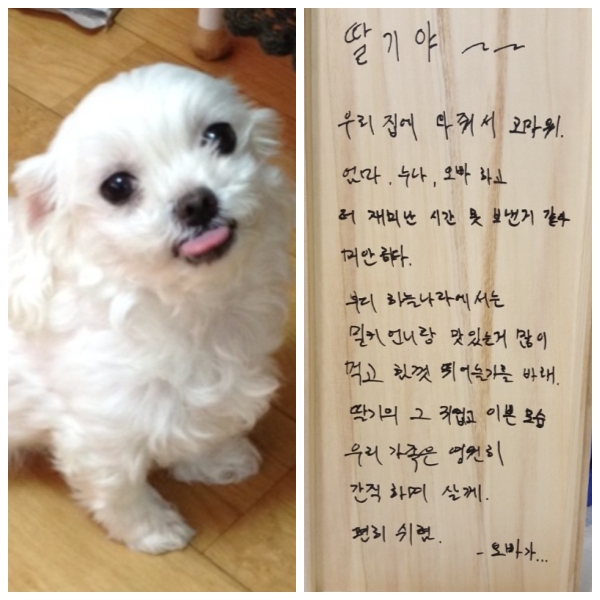 딸기야 ~~
우리 집에 와줘서 고마워.
엄마, 누나, 오빠 하고
더 재미난 시간 못 보낸거 같아
미안하다.
부디 하늘나라에서는
밀키언니랑 맛있는거 많이
먹고 힘껏 뛰어놀기를 바래.
딸기의 그 귀엽고 이쁜 모습
우리 가족은 영원히
간직하며 살께.
편히 쉬렴.
- 오빠가...